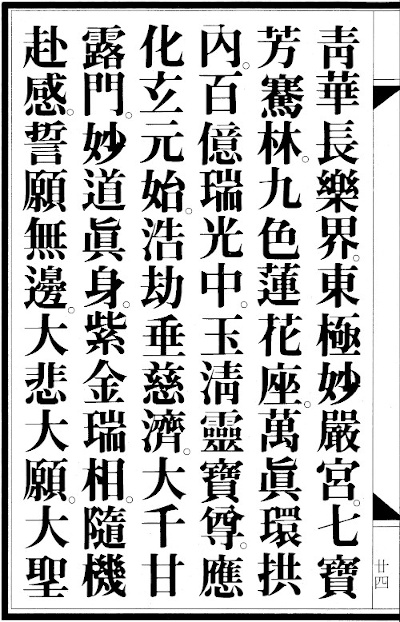 青華長樂界。東極妙嚴宮。七寶
芳騫林。九色蓮花座。萬眞環拱
內。百億瑞光中。玉淸靈寶尊。應
化玄元始。浩劫垂慈濟。大千甘
露門。妙道眞身。紫金瑞相。隨機
赴感。誓願無邊。大悲大願。大聖
廿四